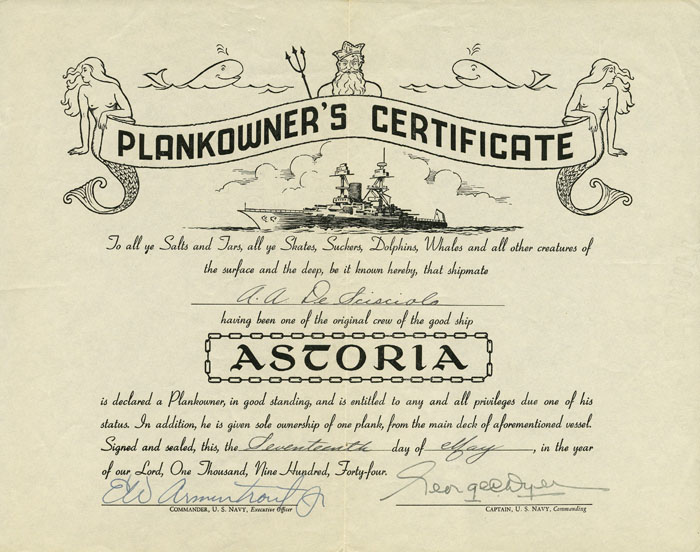 PLANKOWNER'S CERTIFICATE
To all ye Salts and Tars, all ye Skates, Suckers, Dolphins, Whales and all other creatures of
the surface and the deep, be it known hereby, that shipmate
A. A. De Scisciolo
having been one of the original crew of the good ship
ASTORIA
is declared a Plankowner, in good standing, and is entitled to any and all privileges due one of his
status. In addition, he is given sole ownership of one plank, from the main deck of aforementioned vessel.
Signed and sealed, this, the Seventeenth day of May, in the year
of our Lord, One Thousand, Nine Hundred, Forty-four.
EW Armentrout Jr George C Dyer
COMMANDER, U. S. NAVY, Executive Officer CAPTAIN, U. S. NAVY, Commanding